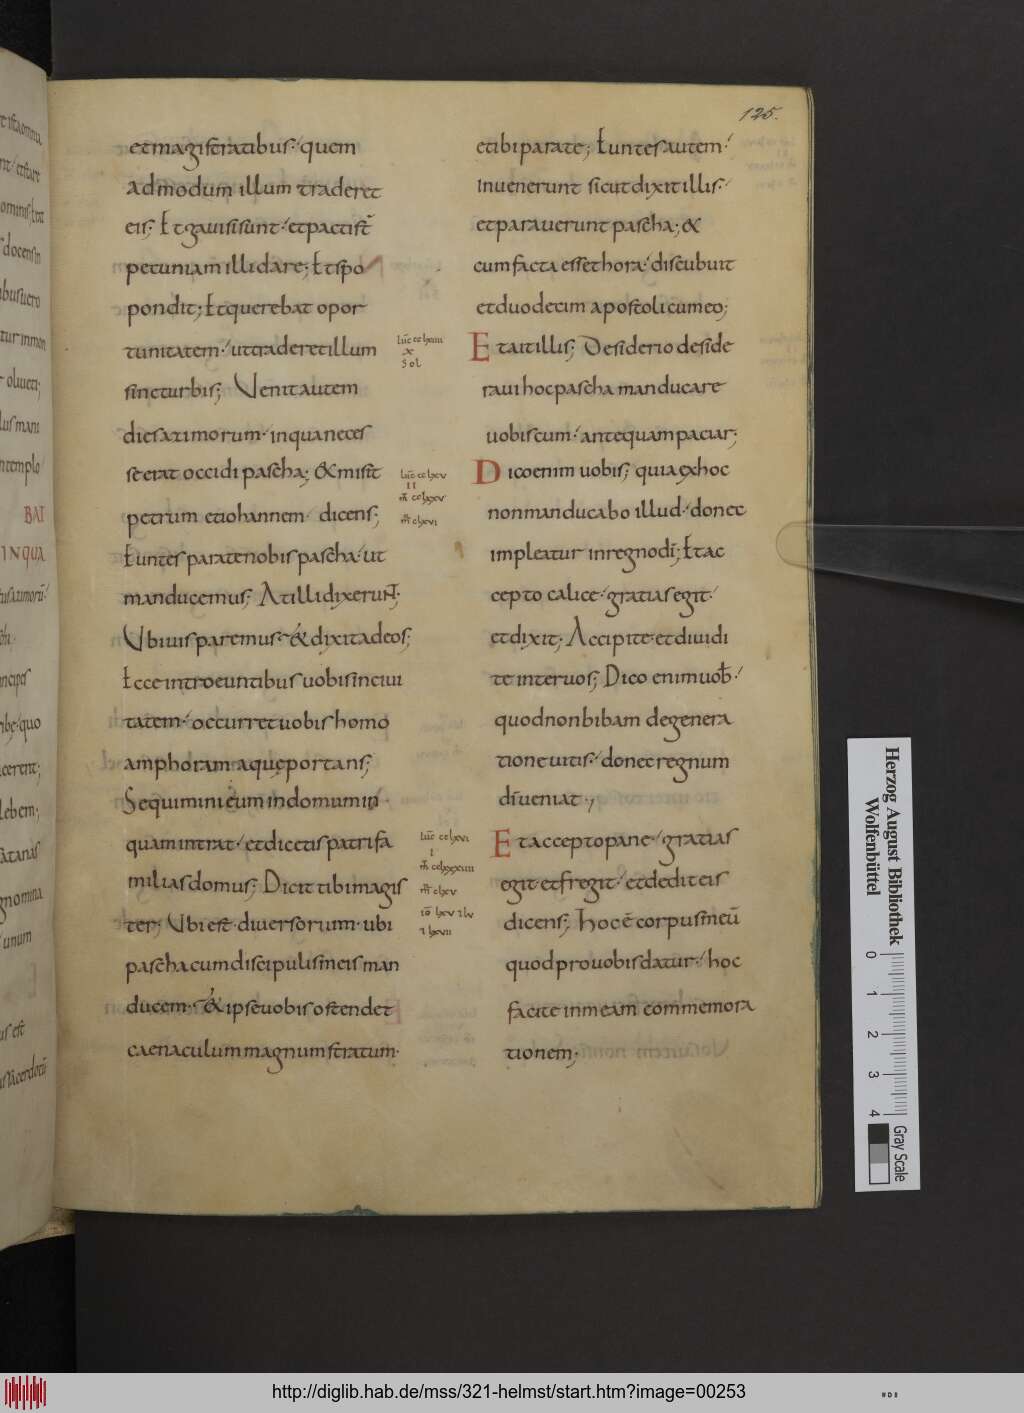 125.
et magistratibus; quem
admodum illum traderet
eis; Et gauisi sunt et pacti st̄
petuniam illi dare; Et spo
pondit; Et querebat opor
tunitatem ut traderet illum
sine turbis; Venit autem
dies azimorum in qua neces
se erat occidi pascha; & misit
petrum et iohannem dicens;
Euntes parate nobis pascha ut
manducemus; At illi dixerunt;
Vbi uis paremus & dixit ad eos;
Ecce introeuntibus uobis in ciui
tatem occurret uobis homo
amphoram aque portans;
Sequimini eum in domum in
quam intrat et dicetis patri fa
milias domus; Dicit tibi magis
ter; Vbi est diuersorum ubi
pascha cum discipulis meis man
ducem & ipse uobis ostendet
caenaculum magnum stratum
et ibi parate; Euntes autem
inuenerunt sicut dixit illis
et parauerunt pascha; &
cum facta esset hora discubuit
et duodecim apostoli cum eo;
Et ait illis; Desiderio deside
raui hoc pascha manducare
uobiscum antequam paciar;
Dico enim uobis; quia ex hoc
non manducabo illud donec
impleatur in regno dī; Et ac
cepto calice gratias egit
et dixit; Accipite et diuidi
te inter uos; Dico enim uob̄
quod non bibam de genera
tione uitis donec regnum
dī ueniat
Et accepto pane gratias
egit et fregit et dedit eis
dicens; Hoc ē corpus meū
quod pro uobis datur hoc
facite in meam commemora
tionem;
Herzog August Bibliothek
Wolfenbüttel
0 1 2 3 4
Gray Scale
http://diglib.hab.de/mss/321-helmst/start.htm?image=00253